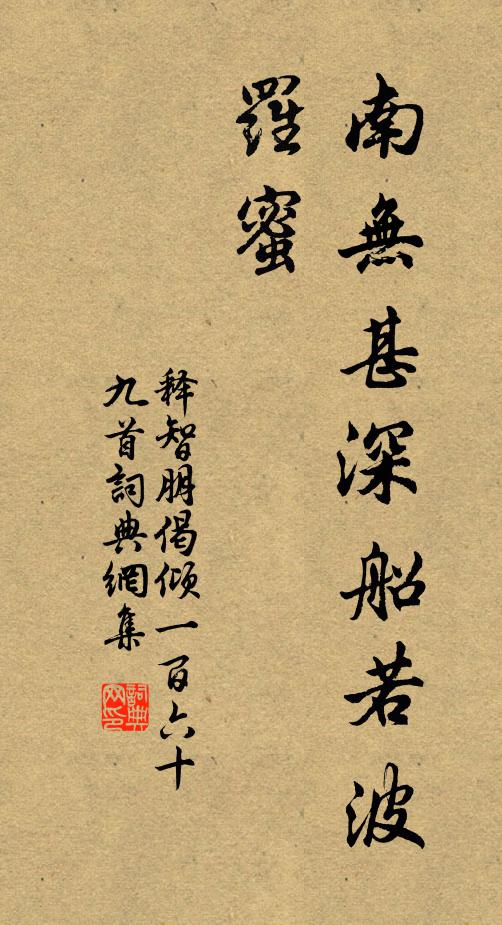 南無甚深船若波
羅蜜
释智朋偈倾一百六十
九首詞典網集
詞典网印